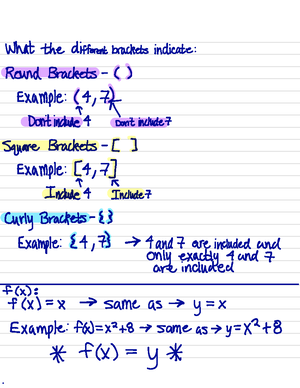 What the different brackets indicate:
Round Brackets - ( )
Example: (4, 7)
Don't include 4 Don't include 7
Square Brackets - [ ]
Example: [4, 7]
Include 4 Include 7
Curly Brackets - { }
Example: {4, 7} → 4 and 7 are included and
only exactly 4 and 7
are included
f(x):
f(x) = x → same as → y = x
Example: f(x) = x²+8 → same as → y = x²+8
* f(x) = y *